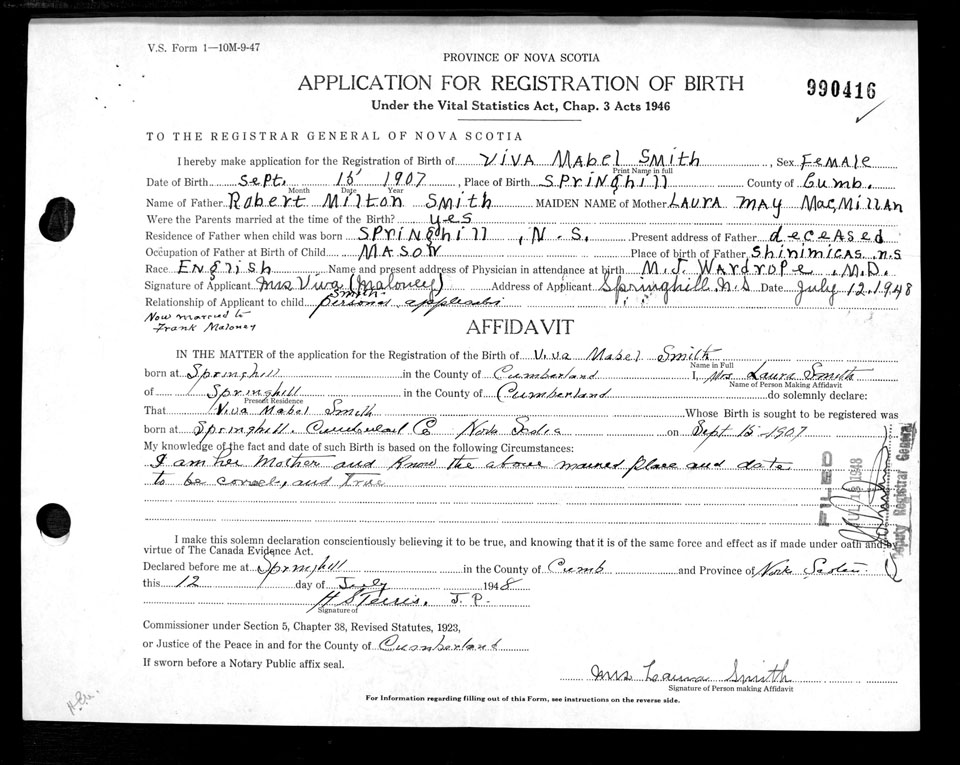 V.S. Form 1—10M-9-47
PROVINCE OF NOVA SCOTIA
APPLICATION FOR REGISTRATION OF BIRTH
990416
Under the Vital Statistics Act, Chap. 3 Acts 1946
TO THE REGISTRAR GENERAL OF NOVA SCOTIA
I hereby make application for the Registration of Birth of Viva Mabel Smith, Sex Female
Print Name in full
Date of Birth Sept. 15 1907, Place of Birth Springhill County of Cumb.
Month Date Year
Name of Father Robert Milton Smith MAIDEN NAME of Mother Laura May MacMillan
Were the Parents married at the time of the Birth? yes
Residence of Father when child was born Springhill, N.S. Present address of Father deceased
Occupation of Father at Birth of Child Mason Place of birth of Father Shinimicas N.S
Race English Name and present address of Physician in attendance at birth M.J. Wardrope, M.D.
Signature of Applicant Mrs Viva (Maloney) Address of Applicant Springhill, N.S Date July 12, 1948
Smith
Relationship of Applicant to child personal
Now married to
Frank Maloney
AFFIDAVIT
IN THE MATTER of the application for the Registration of the Birth of Viva Mabel Smith
Name in Full
born at Springhill in the County of Cumberland I, Mrs Laura Smith
Name of Person Making Affidavit
of Springhill in the County of Cumberland do solemnly declare:
Present Residence
That Viva Mabel Smith Whose Birth is sought to be registered was
born at Springhill. Cumberland Co Nova Scotia on Sept 15-1907
My knowledge of the fact and date of such Birth is based on the following Circumstances:
I am her Mother and know the above named place and date
to be correct, and true
FILED
JUL 16 1948
Deputy Registrar General
I make this solemn declaration conscientiously believing it to be true, and knowing that it is of the same force and effect as if made under oath and by
virtue of The Canada Evidence Act.
Declared before me at Springhill in the County of Cumb and Province of Nova Scotia
this 12 day of July 1948
J.P.
Signature of
Commissioner under Section 5, Chapter 38, Revised Statutes, 1923,
or Justice of the Peace in and for the County of Cumberland
If sworn before a Notary Public affix seal.
Mrs Laura Smith
Signature of Person making Affidavit
For Information regarding filling out of this Form, see instructions on the reverse side.